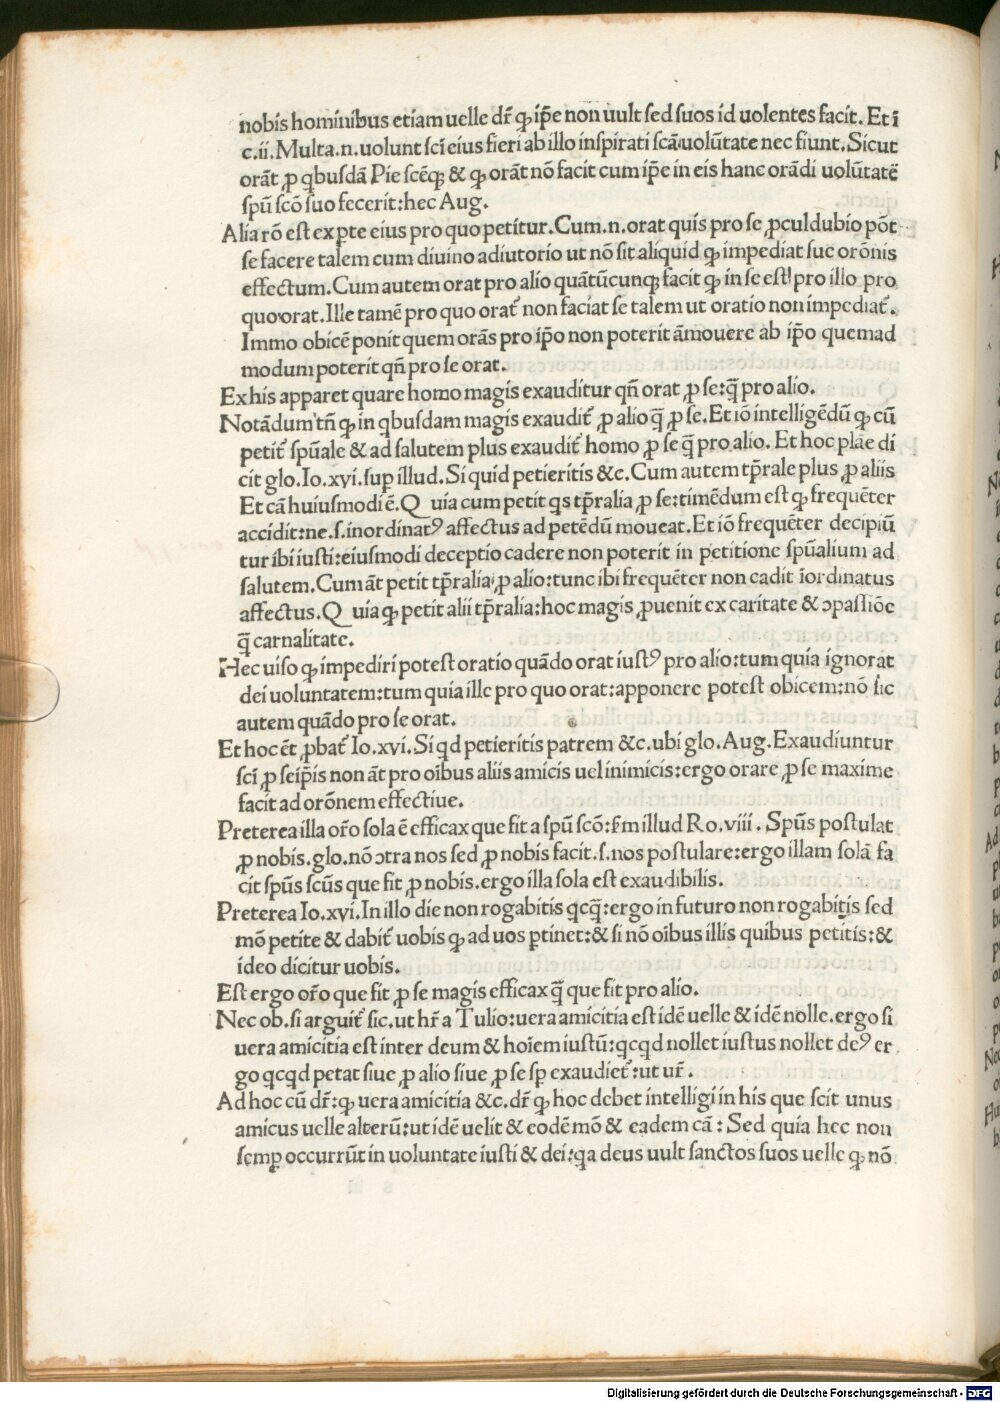 nobis hominibus etiam uelle dr̄ ꝙ ip̄e non uult sed suos id uolentes facit. Et ī
c.ii. Multa.n.uolunt sc̄i eius fieri ab illo inspirati sc̄a uolūtate nec fiunt. Sicut
orāt ꝓ qbusdā Pie sc̄eqꝫ & ꝙ orāt nō facit cum ip̄e in eis hanc orādi uolūtatē
spū scō suo fecerit: hec Aug.
Alia rō est ex pte eius pro quo petitur. Cum.n.orat quis pro se ꝓculdubio pōt
se facere talem cum diuino adiutorio ut nō sit aliquid ꝙ impediat sue orōnis
effectum. Cum autem orat pro alio quātūcunqꝫ facit ꝙ in se est pro illo pro
quo orat. Ille tamē pro quo orat᷑ non faciat se talem ut oratio non impediat᷑.
Immo obicē ponit quem orās pro ip̄o non poterit āmouere ab ip̄o quemad
modum poterit qn̄ pro se orat.
Ex his apparet quare homo magis exauditur qn̄ orat ꝓ se: q̄ pro alio.
Notādum tn̄ ꝙ in qbusdam magis exaudit᷑ ꝓ alio q̄ ꝓ se. Et iō intelligēdū ꝙ cū
petit᷑ spūale & ad salutem plus exaudit᷑ homo ꝓ se q̄ pro alio. Et hoc plāe di
cit glo. Io.xvi. sup illud. Si quid petieritis &c. Cum autem tp̄rale plus ꝓ aliis
Et cā huiusmodi ē. Quia cum petit qs tp̄ralia ꝓ se: timēdum est ꝙ frequēter
accidit: ne.s.inordinatꝰ affectus ad petēdū moueat. Et iō frequēter decipiū
tur ibi iusti: eiusmodi deceptio cadere non poterit in petitione spūalium ad
salutem. Cum āt petit tp̄ralia ꝓ alio: tunc ibi frequēter non cadit īordinatus
affectus. Quia ꝙ petit alii tp̄ralia: hoc magis ꝓuenit ex caritate & ɔpassiōe
q̄ carnalitate.
Hec uiso ꝙ impediri potest oratio quādo orat iustꝰ pro alio: tum quia ignorat
dei uoluntatem: tum quia ille pro quo orat: apponere potest obicem: nō sic
autem quādo pro se orat.
Et hoc ēt ꝓbat᷑ Io.xvi. Si qd petieritis patrem &c. ubi glo. Aug. Exaudiuntur
sc̄i ꝓ seip̄is non āt pro oībus aliis amicis uel inimicis: ergo orare ꝓ se maxime
facit ad orōnem effectiue.
Preterea illa or̄o sola ē efficax que fit a spū scō: s̄m illud Ro.viii. Spūs postulat
ꝓ nobis. glo. nō ɔtra nos sed ꝓ nobis facit.s.nos postulare: ergo illam solā fa
cit spūs scūs que fit ꝓ nobis. ergo illa sola est exaudibilis.
Preterea Io.xvi. In illo die non rogabitis qcq̄: ergo in futuro non rogabitis sed
mō petite & dabit᷑ uobis ꝙ ad uos ptinet: & si nō oībus illis quibus petitis: &
ideo dicitur uobis.
Est ergo or̄o que fit ꝓ se magis efficax q̄ que fit pro alio.
Nec ob. si arguit᷑ sic. ut hr̄ a Tulio: uera amicitia est idē uelle & idē nolle. ergo si
uera amicitia est inter deum & hoīem iustū: qcqd nollet iustus nollet deꝰ er
go qcqd petat siue ꝓ alio siue ꝓ se sp̄ exaudiet᷑: ut ur̄.
Ad hoc cū dr̄: ꝙ uera amicitia &c. dr̄ ꝙ hoc debet intelligi in his que scit unus
amicus uelle alterū: ut idē uelit & eodē mō & eadem cā: Sed quia hec non
semp̱ occurrūt in uoluntate iusti & dei: qa deus uult sanctos suos uelle ꝙ nō
Digitalisierung gefördert durch die Deutsche Forschungsgemeinschaft - DFG